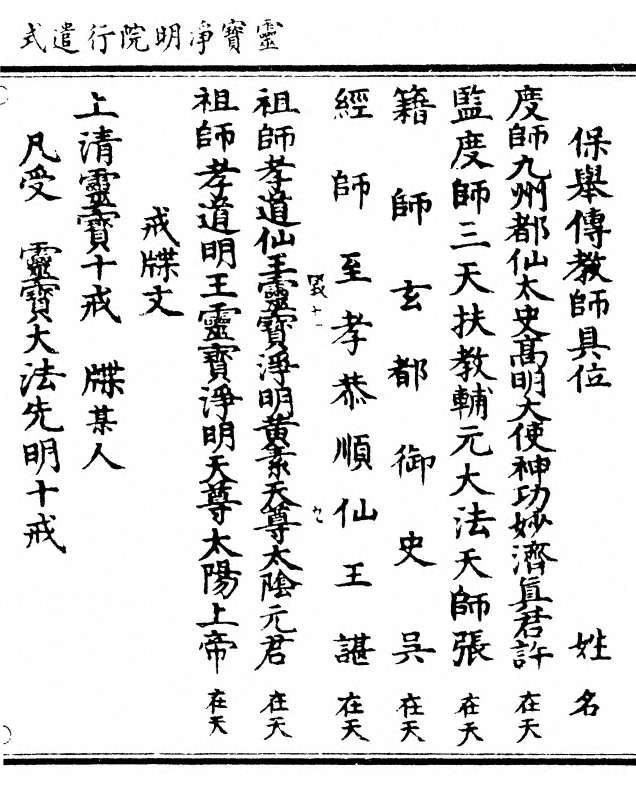 靈寶淨明院行遣式
保舉傳教師具位 姓名
度師九州都仙太史高明大使神功妙濟眞君許 在天
監度師三天扶教輔元大法天師張 在天
籍師玄都御史吳 在天
經師至孝恭順仙王諶 在天
祖師孝道仙王靈寶淨明黃素天尊太陰元君 在天
祖師孝道明王靈寶淨明天尊太陽上帝 在天
戒牒文
上清靈寶十戒 牒某人
凡受 靈寶大法先明十戒